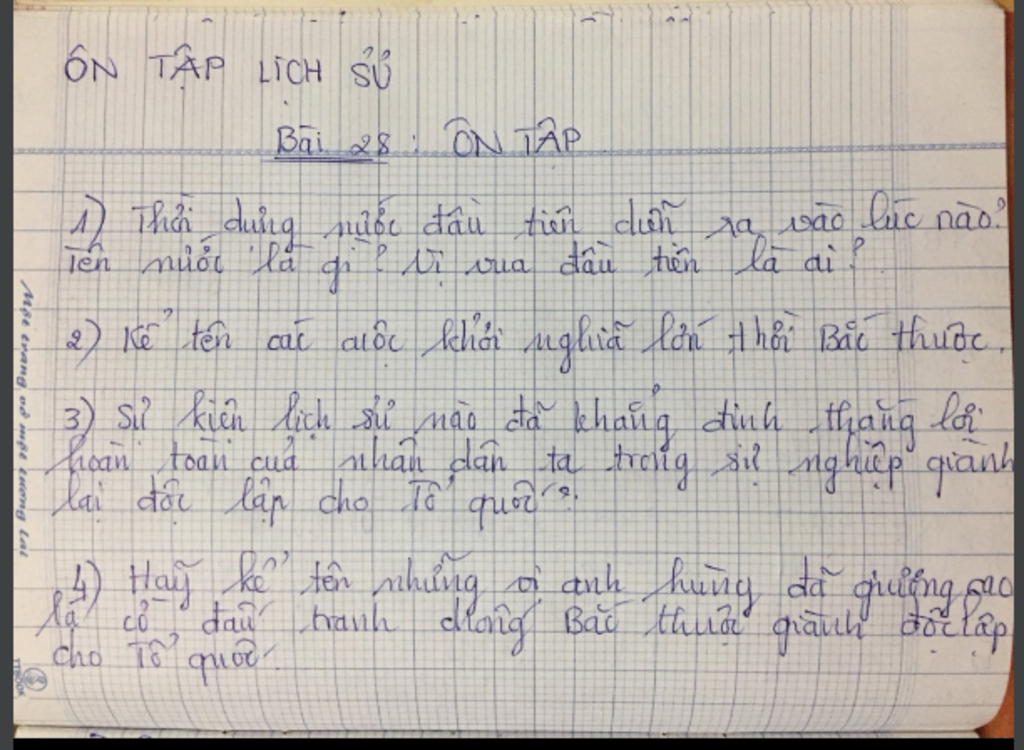 ÔN TẬP LỊCH SỬ
Bài 28 : ÔN TẬP
1) Thời dựng nước đầu tiên diễn ra vào lúc nào?
Tên nước là gì? Vị vua đầu tiên là ai?
2) Kể tên các cuộc khởi nghĩa lớn thời Bắc thuộc.
3) Sự kiện lịch sử nào đã khẳng định thắng lợi
hoàn toàn của nhân dân ta trong sự nghiệp giành
lại độc lập cho Tổ quốc?
4) Hãy kể tên những vị anh hùng đã giương cao
lá cờ đấu tranh chống Bắc thuộc giành độc lập
cho Tổ quốc.
Một trang vở một tương lai